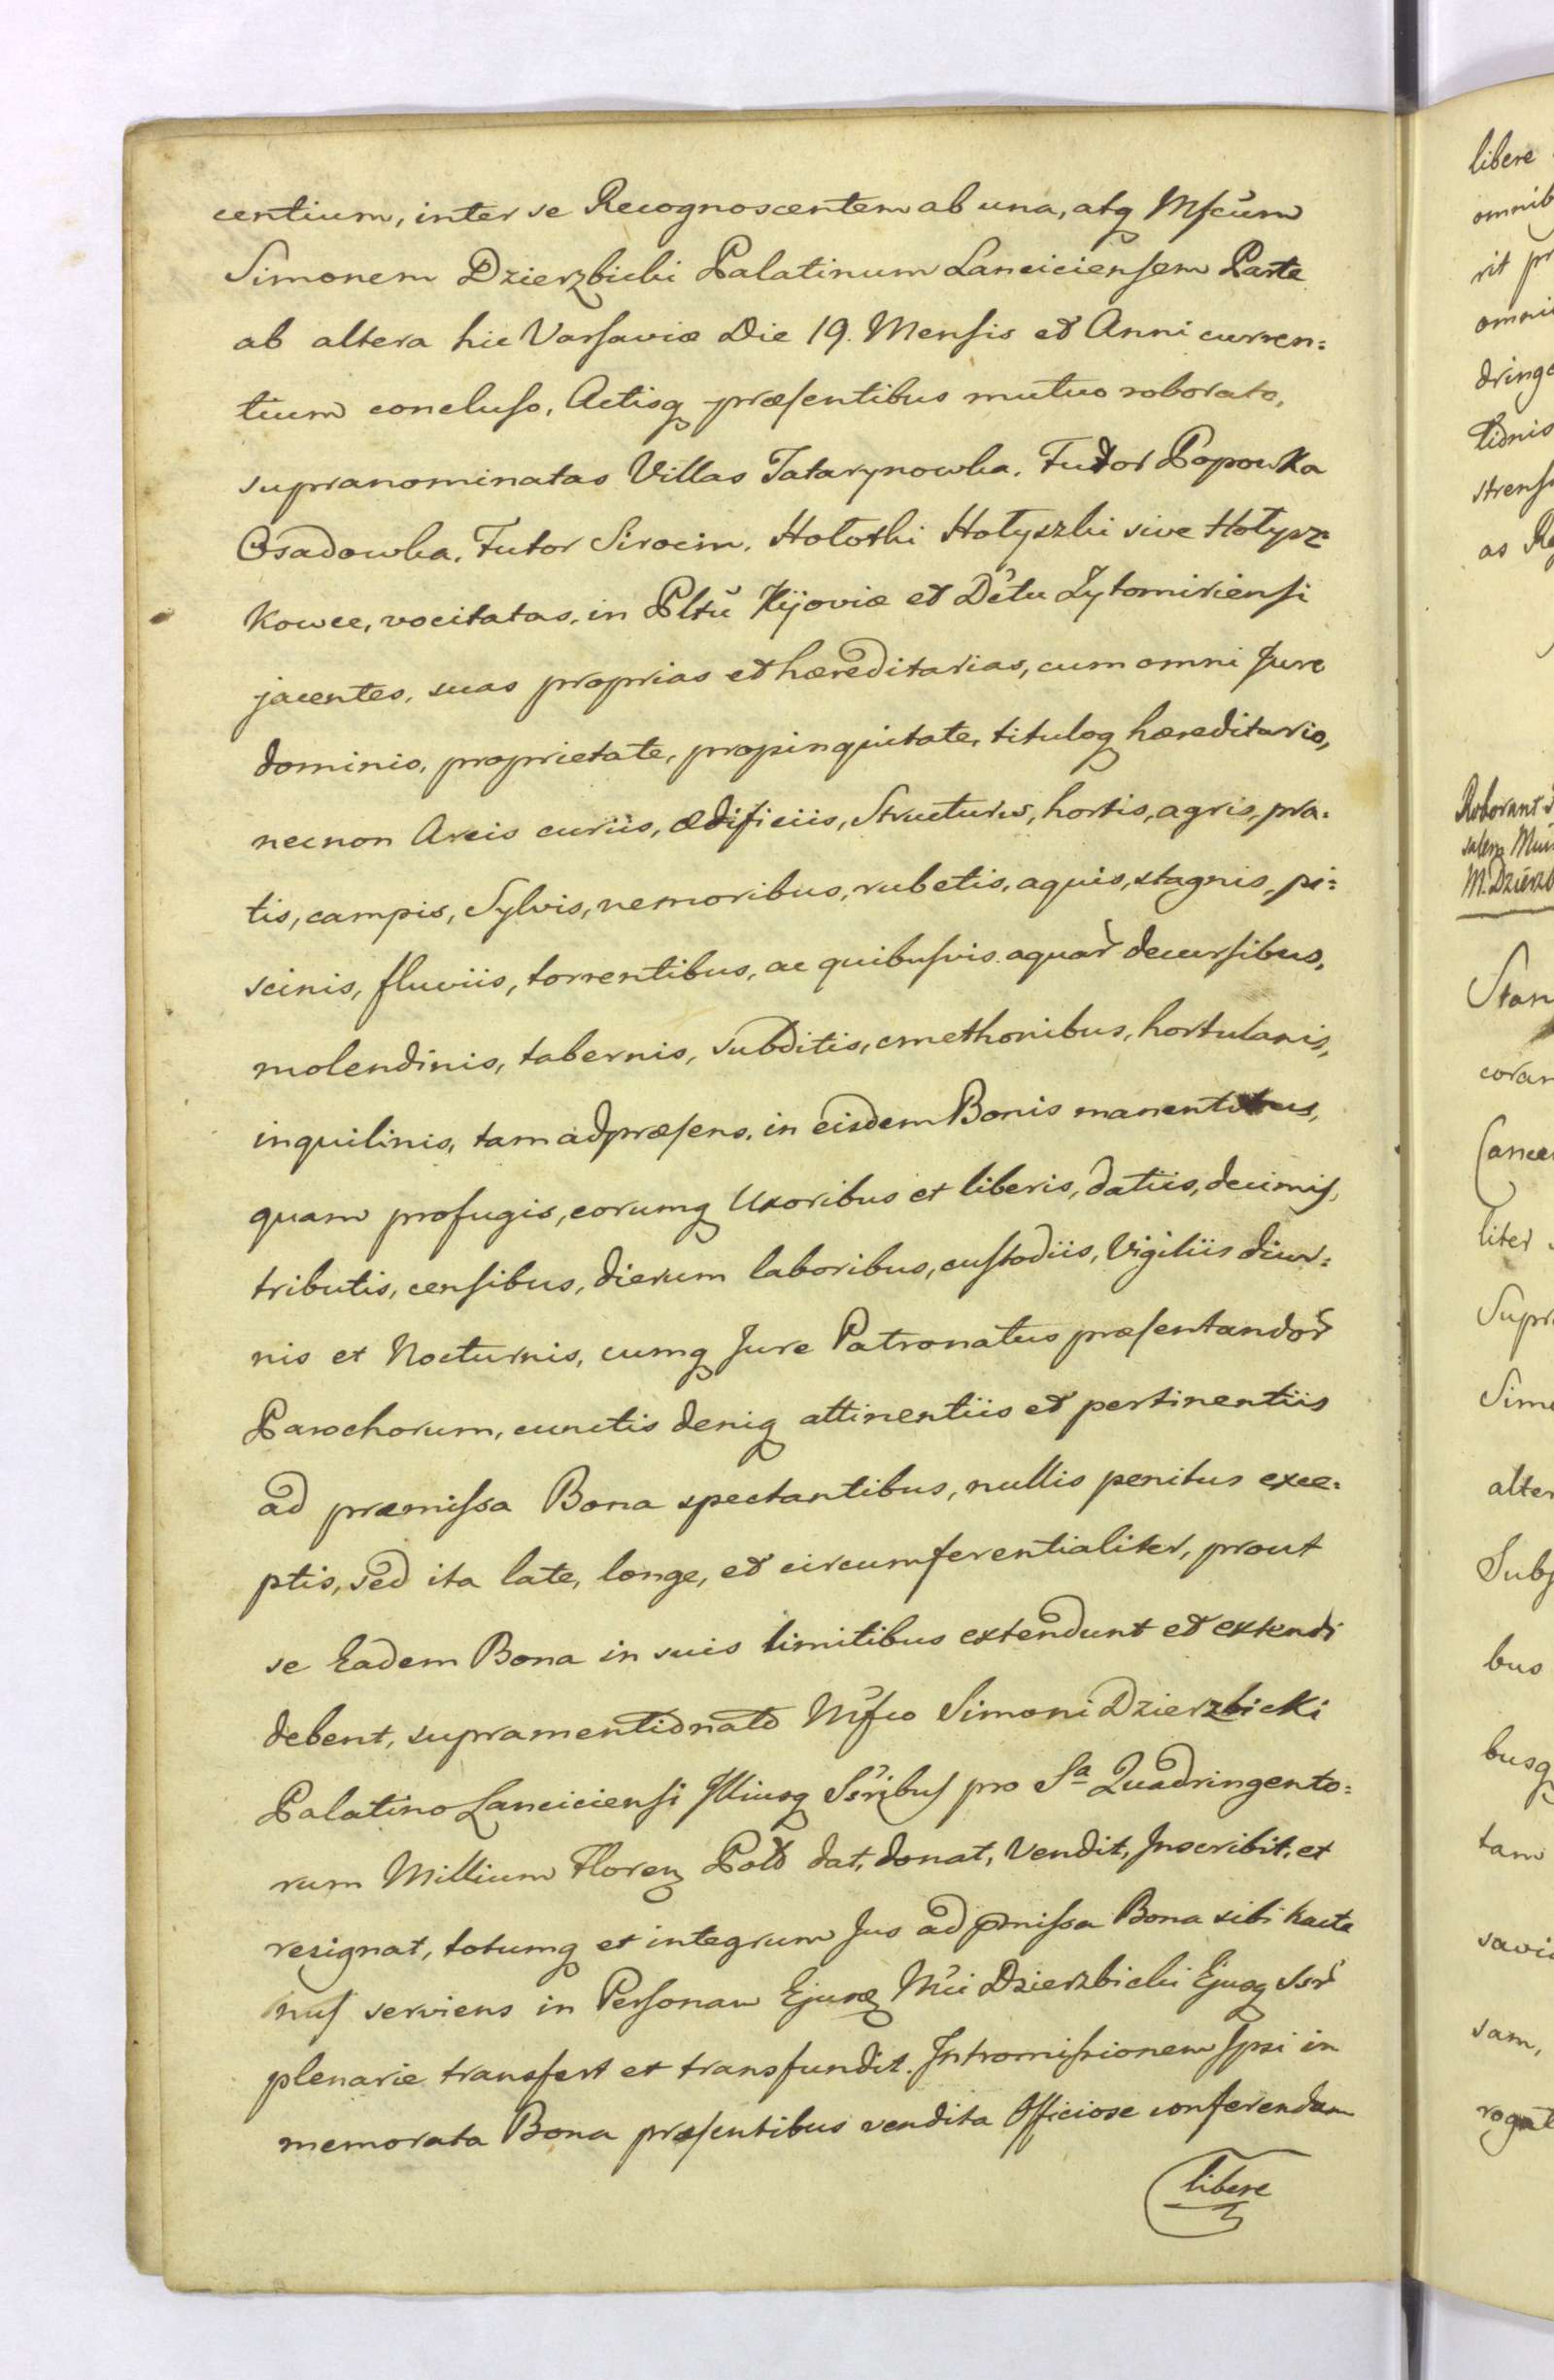 centium, inter se Recognoscentem ab una, atq Mfcũm
Simonem Dzierzbicki Palatinum Lanciciensem Parte
ab altera hic Varsaviæ Die 19. Mensis et Anni curren=
tium concluso, Actisq præsentibus mutuo roborato,
supranominatas Villas Tatarynowka. Futor Popowka
Osadowka. Futor Sirocin. Hołotki Hołyszki sive Hołysz=
kowce, vocitatas, in Pltũ Kijoviæ et Dẽtu Zytomiriensi
jacentes, suas proprias et hæreditarias, cum omni Jure
dominio, proprietate, propinquitate, tituloq hæreditario,
necnon Areis curiis, ædificiis, Structuris, hortis, agris, pra=
tis, campis, Sylvis, nemoribus, rubetis, aquis, stagnis, pi=
scinis, fluviis, torrentibus, ac quibusvis aquar decursibus,
molendinis, tabernis, subditis, cmethonibus, hortulanis,
inquilinis, tam ad præsens, in eisdem Bonis manentibus,
quam profugis, eorumq Uxoribus et liberis, datiis, decimis,
tributis, censibus, dierum laboribus, custodiis, Vigiliis diur=
nis et Nocturnis, cumq Jure Patronatus præsentandor
Parochorum, cunctis deniq attinentiis et pertinentiis
ad præmissa Bona spectantibus, nullis penitus exce=
ptis, sed ita late, longe, et circumferentialiter, prout
se Eadem Bona in suis limitibus extendunt et extendi
debent, supramentionato Mfco Simoni Dzierzbicki
Palatino Lanciciensi Illiusq Ssribus pro Sa Quadringento=
rum Millium Floren Pol dat, donat, Vendit, Inscribit, et
resignat, totumq et integrum Jus ad pmissa Bona sibi hacte
nus serviens in Personam Ejusd Mci Dzierzbicki Ejusq Ssr
plenarie transfert et transfundit. Intromissionem Ipsi in
memorata Bona præsentibus vendita Officiose conferendam
libere
libere
Roborant
M. Dzierzb
Stan
coram
liter
Supr
Simo
alter
bus
busq
tam
savi
sam,
rogat